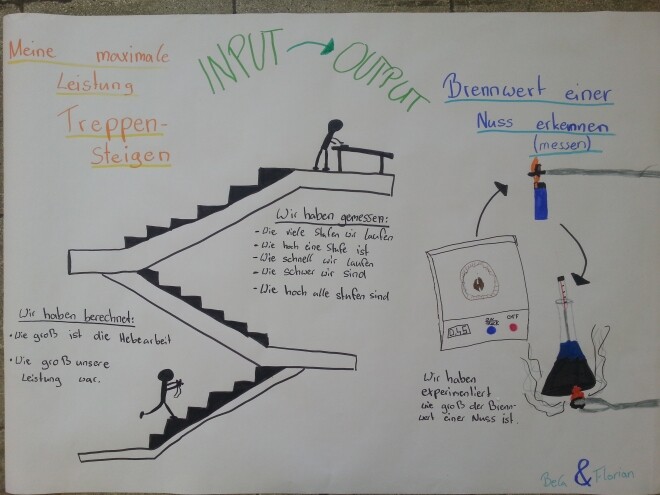 Meine maximale
Leistung
Treppen-
Steigen
INPUT → OUTPUT
Brennwert einer
Nuss erkennen
(messen)
Wir haben gemessen:
- Wie viele Stufen wir laufen
- Wie hoch eine Stufe ist
- Wie schnell wir laufen
- Wie schwer wir sind
- Wie hoch alle stufen sind
Wir haben berechnet:
• Wie groß ist die Hebearbeit
• Wie groß unsere
Leistung war.
0.45
OFF
Wir haben
experimentiert
wie groß der Brenn-
wert einer Nuss ist.
& Florian